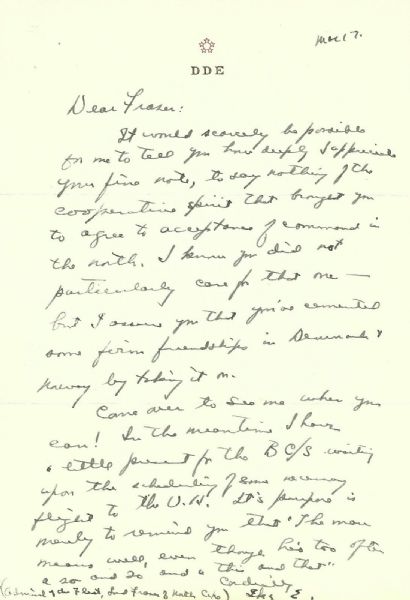 Mar 17.
DDE
Dear Fraser:
It would scarcely be possible
for me to tell you how deeply I appreciate
your fine note, to say nothing of the
cooperative spirit that brought you
to agree to acceptance of command in
the north. I know you did not
particularly care for that one —
but I assure you that you've cemented
some firm friendships in Denmark &
Norway by taking it on.
Come over to see me when you
can! In the meantime I have
a little present for the BC/S waiting
upon the scheduling of some
flight to the U.K. It's purpose is
merely to remind you that "The man
means well, even though he's too often
a so and so and a "this and that"
Cordially
Ike E.
(Admiral of the Fleet, Lord Fraser of North Cape)